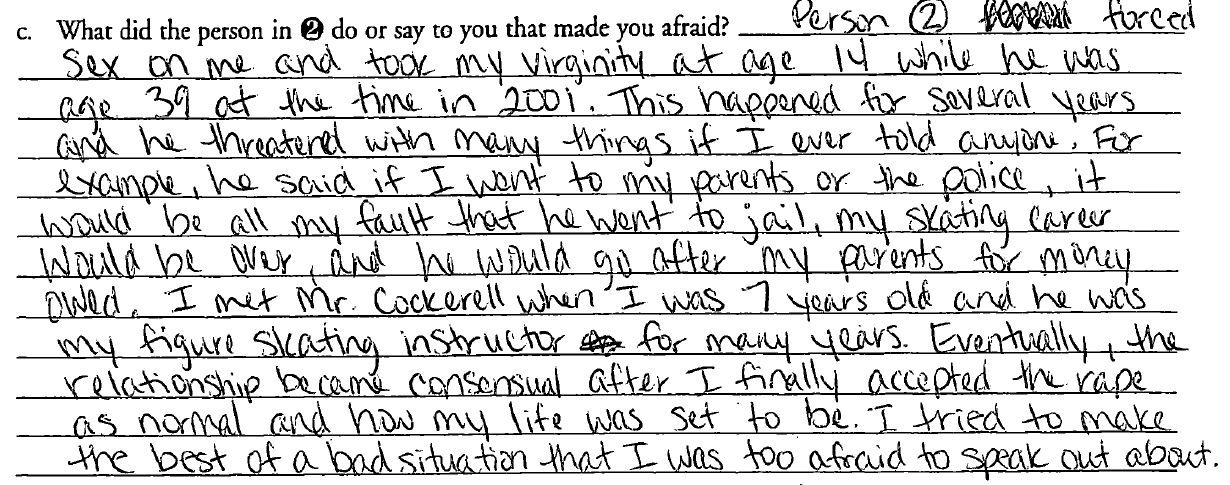 c. What did the person in ❷ do or say to you that made you afraid? Person ② forced
sex on me and took my virginity at age 14 while he was
age 39 at the time in 2001. This happened for several years
and he threatend with many things if I ever told anyone. For
example, he said if I went to my parents or the police, it
would be all my fault that he went to jail, my skating career
would be over, and he would go after my parents for money
owed. I met Mr. Cockerell when I was 7 years old and he was
my figure skating instructor for many years. Eventually, the
relationship became consensual after I finally accepted the rape
as normal and how my life was set to be. I tried to make
the best of a bad situation that I was too afraid to speak out about.